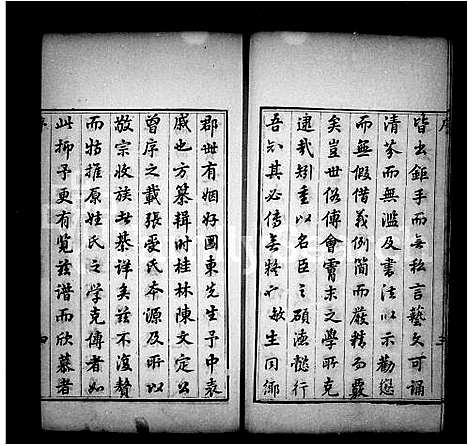 序
三
皆出鉅手而無私言藝文可誦
清芬而無濫及書法以示勸懲
而無假借義例簡而嚴精而覈
矣豈世俗傅會膚末之學所克
逮哉矧重以名臣之碩德懿行
吾知其必傳無疑不敏生同鄉
郡世有姻好國東先生予中表
戚也方纂輯時桂林陳文定公
曾序之載張受氏本源及所以
敬宗收族者綦詳矣茲不復贅
而特推原姓氏之學克傳者如
此抑予更有覽茲譜而欣慕者
序
四